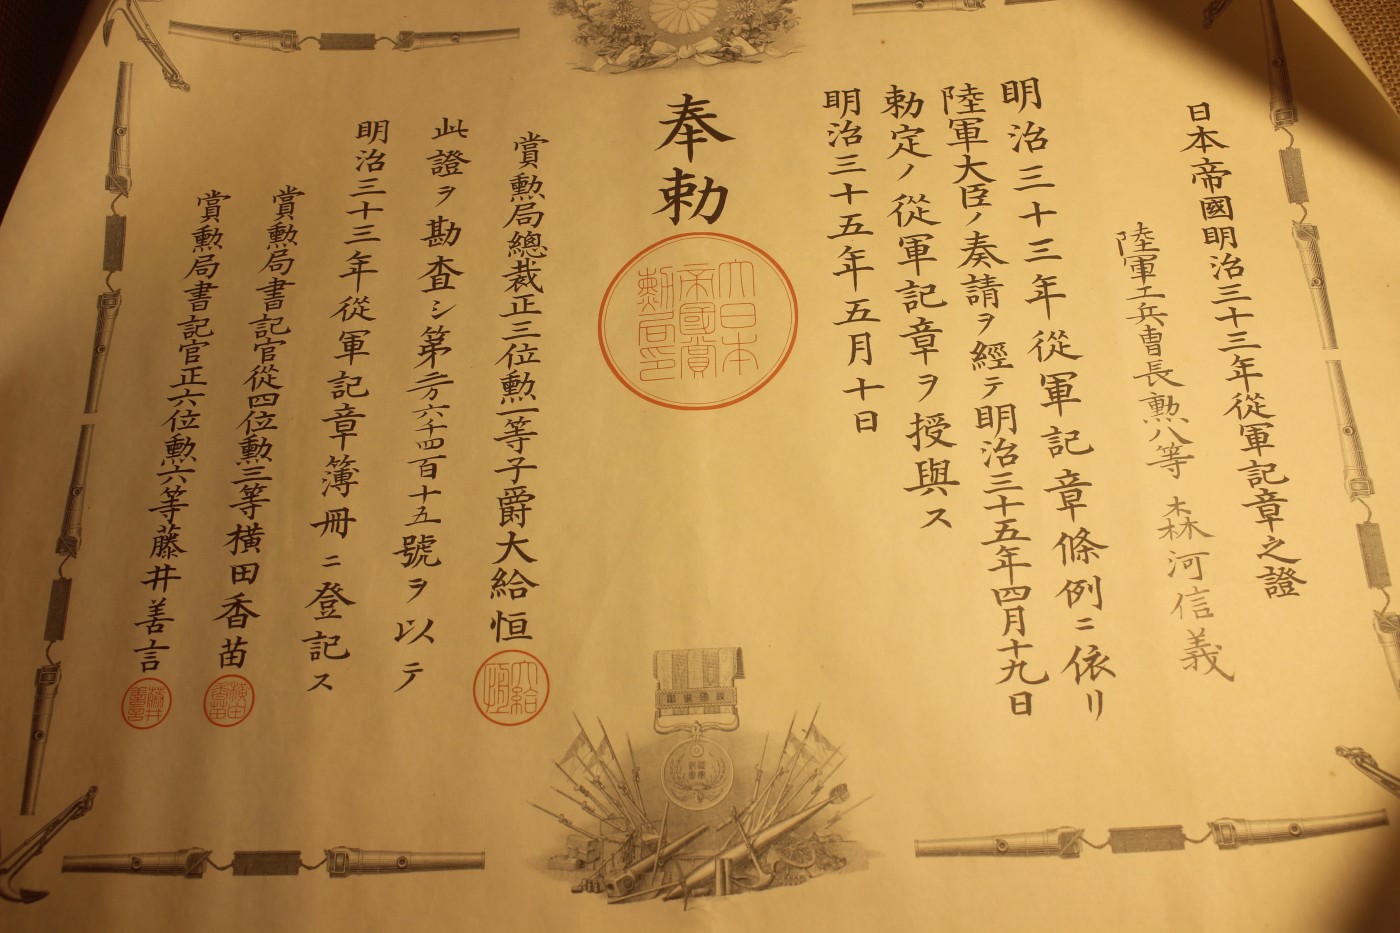 日本帝國明治三十三年從軍記章之證
陸軍工兵曹長勲八等 森河信義
明治三十三年從軍記章條例ニ依リ
陸軍大臣ノ奏請ヲ經テ明治三十五年四月十九日
勅定ノ從軍記章ヲ授與ス
明治三十五年五月十日
奉勅
大日本
帝國賞
勲局印
賞勲局總裁正三位勲一等子爵大給恒
大給
恒
此證ヲ勘査シ第二万六千四百十五號ヲ以テ
明治三十三年從軍記章簿冊ニ登記ス
賞勲局書記官從四位勲三等横田香苗
横田
香苗
賞勲局書記官正六位勲六等藤井善言
藤井
善言